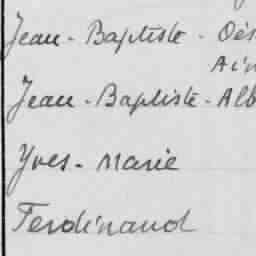 Jean-Baptiste-Dés
Ain
Jean-Baptiste-Alb
Yves-Marie
Ferdinand